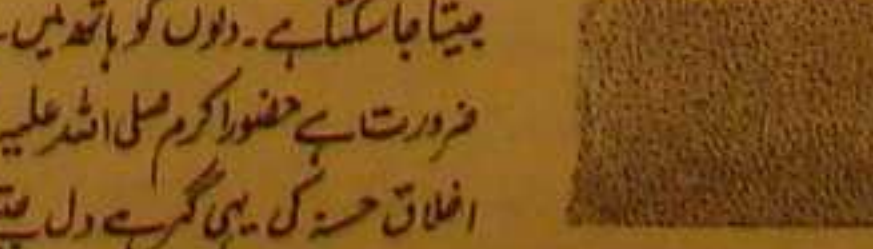 جیتا جا سکتا ہے ۔ دلوں کو ہاتھ میں ۔
ضرورت ہے حضور اکرم صلی اللہ علیہ
اخلاق حسنہ کی یہی گر ہے دل جیتے